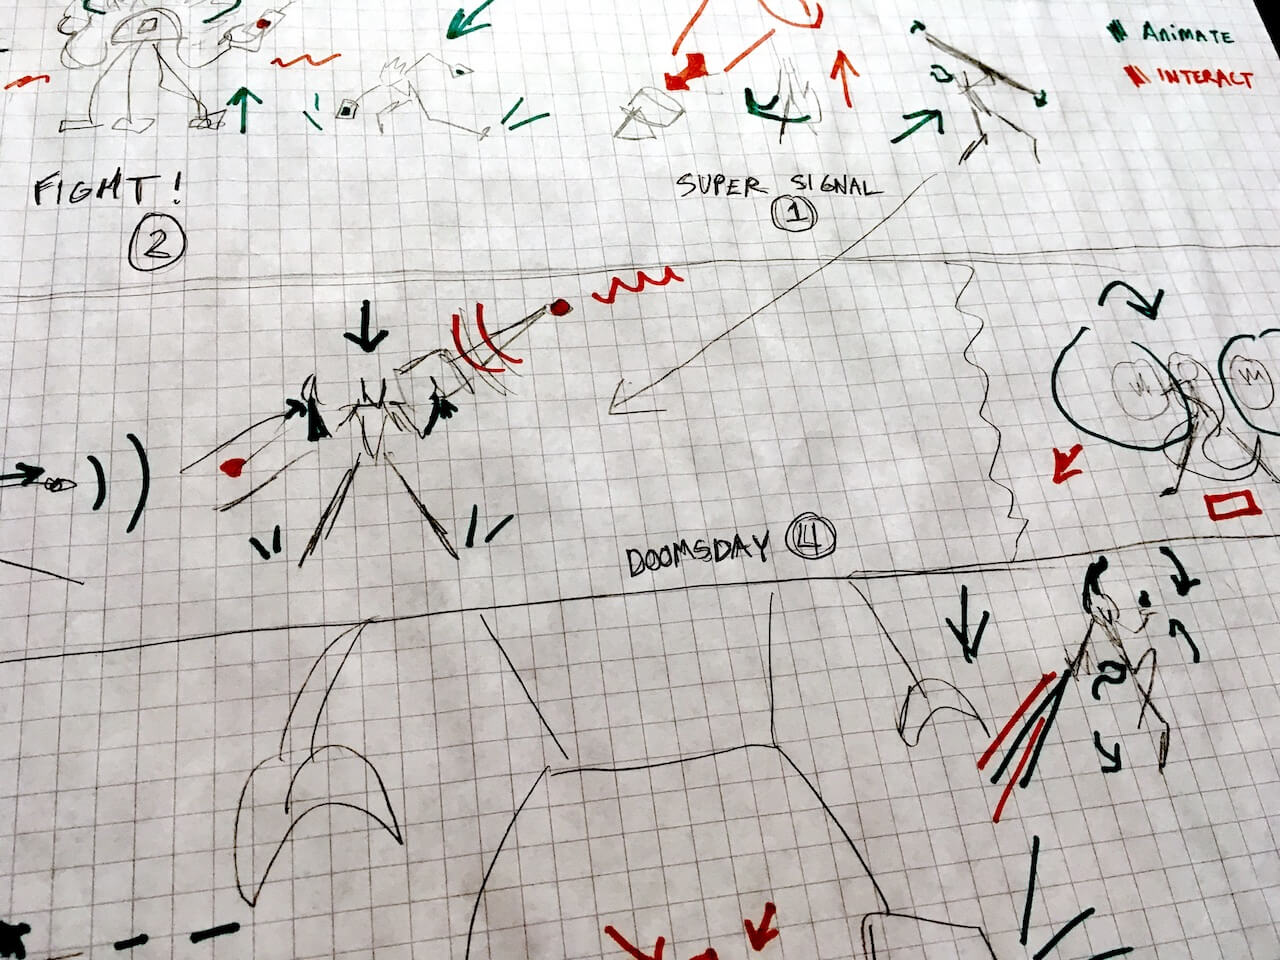 ANIMATE
INTERACT
FIGHT!
2
SUPER SIGNAL
1
DOOMSDAY 4